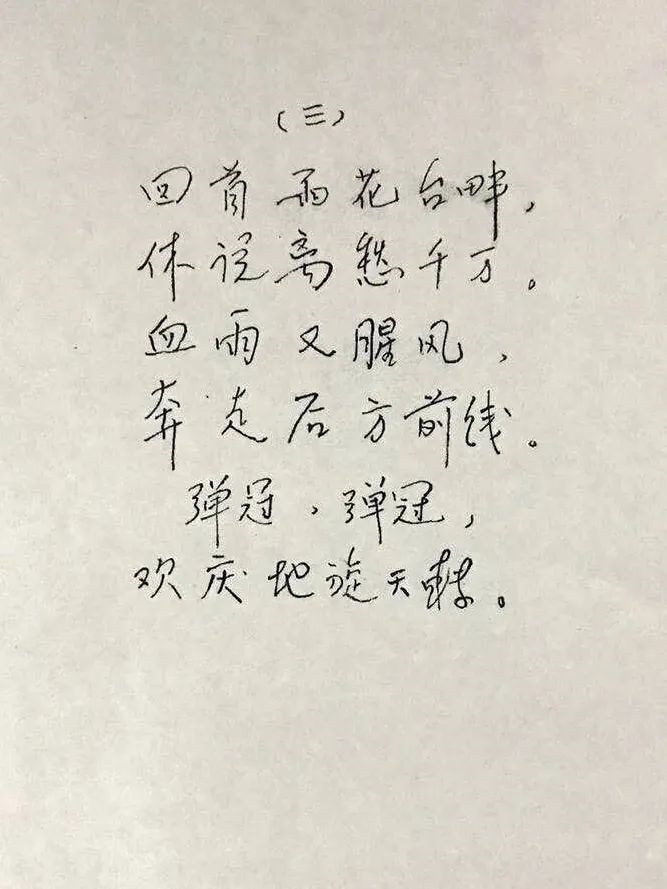 （三）
回首雨花台畔，
休说离愁千万。
血雨又腥风，
奔走后方前线。
弹冠，弹冠，
欢庆地旋天转。